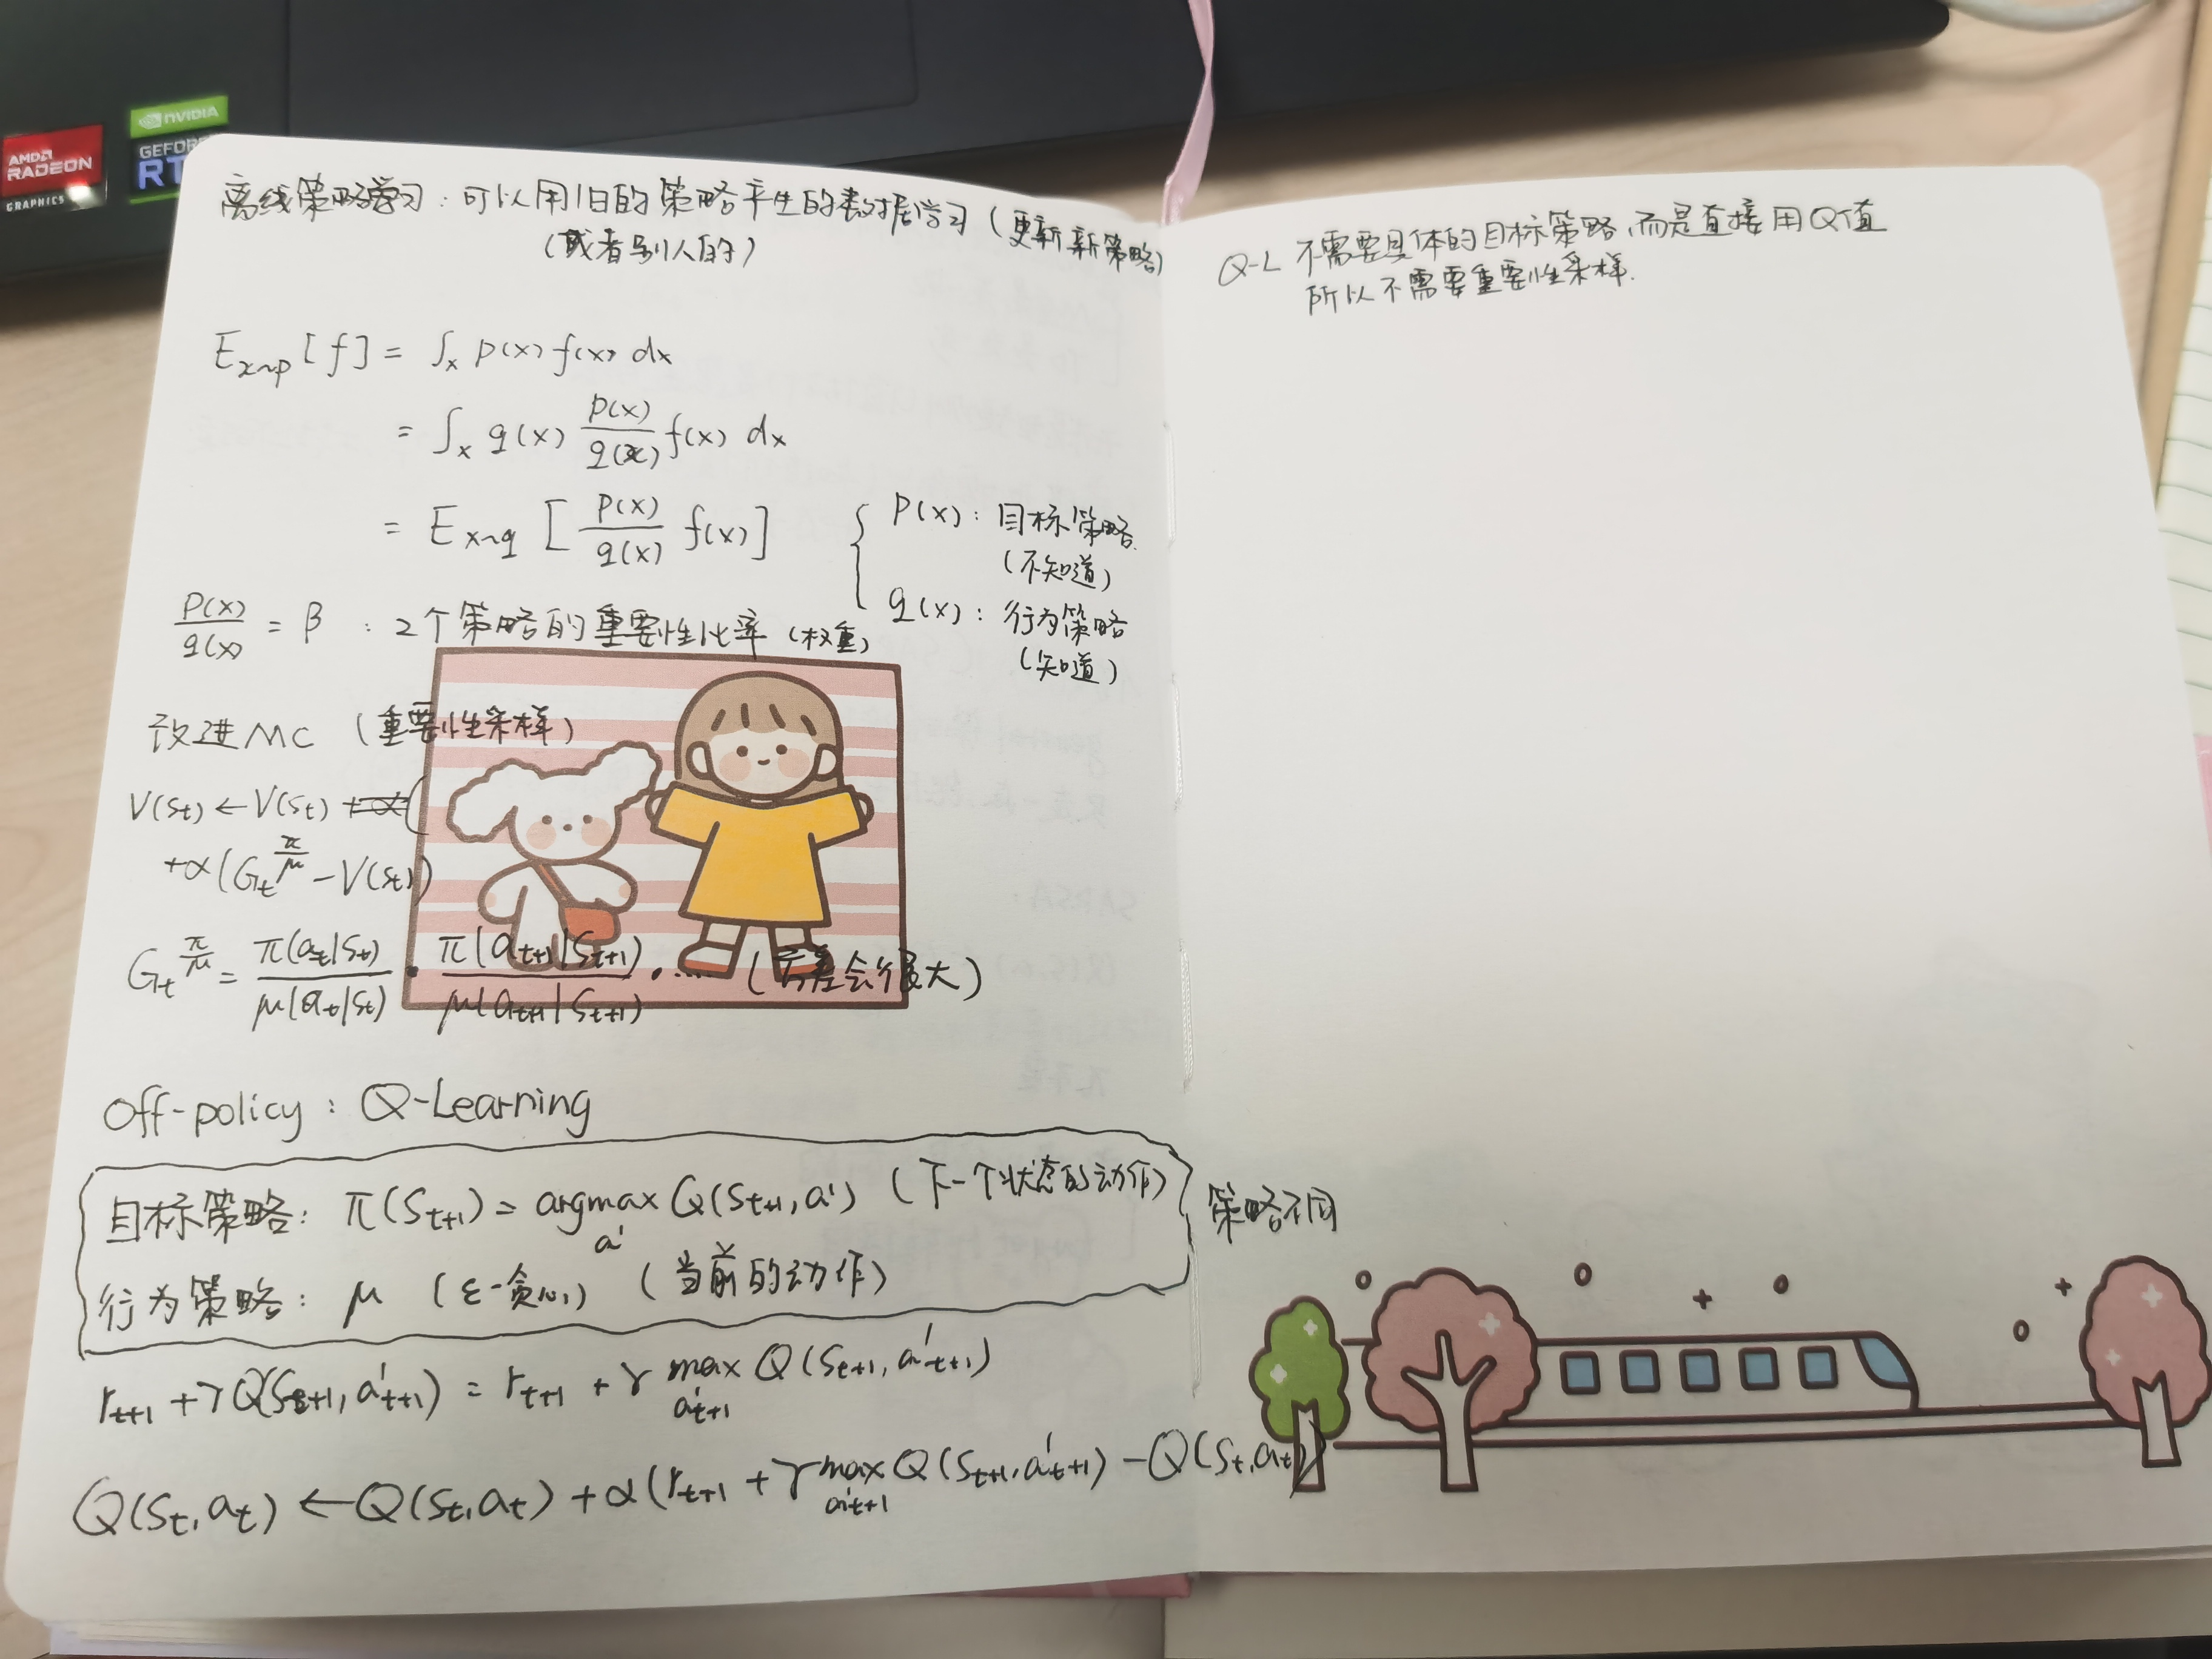 AMD
RADEON
GRAPHICS
NVIDIA
GEFOR
RT
离线策略学习：可以用旧的策略产生的数据学习（更新新策略）
（或者别人的）
E_{x~p}[f] = ∫_x p(x) f(x) dx
= ∫_x q(x) \frac{p(x)}{q(x)} f(x) dx
= E_{x~q} [ \frac{p(x)}{q(x)} f(x) ]
{ p(x)：目标策略
（不知道）
q(x)：行为策略
（知道）
\frac{p(x)}{q(x)} = β ：2个策略的重要性比率（权重）
改进MC （重要性采样）
V(s_t) ← V(s_t)
+α(G_t^{\frac{π}{μ}} - V(s_t))
G_t^{\frac{π}{μ}} = \frac{π(a_t|s_t)}{μ(a_t|s_t)} · \frac{π(a_{t+1}|s_{t+1})}{μ(a_{t+1}|s_{t+1})} · …… （方差会很大）
Off-policy：Q-Learning
目标策略：π(s_{t+1}) = argmax_{a'} Q(s_{t+1}, a') （下一个状态的动作）
行为策略：μ （ε-贪心） （当前的动作）
策略不同
r_{t+1} + γQ(s_{t+1}, a'_{t+1}) = r_{t+1} + γ max_{a'_{t+1}} Q(s_{t+1}, a'_{t+1})
Q(s_t, a_t) ← Q(s_t, a_t) + α(r_{t+1} + γ max_{a'_{t+1}} Q(s_{t+1}, a'_{t+1}) - Q(s_t, a_t))
Q-L 不需要具体的目标策略，而是直接用Q值
所以不需要重要性采样.